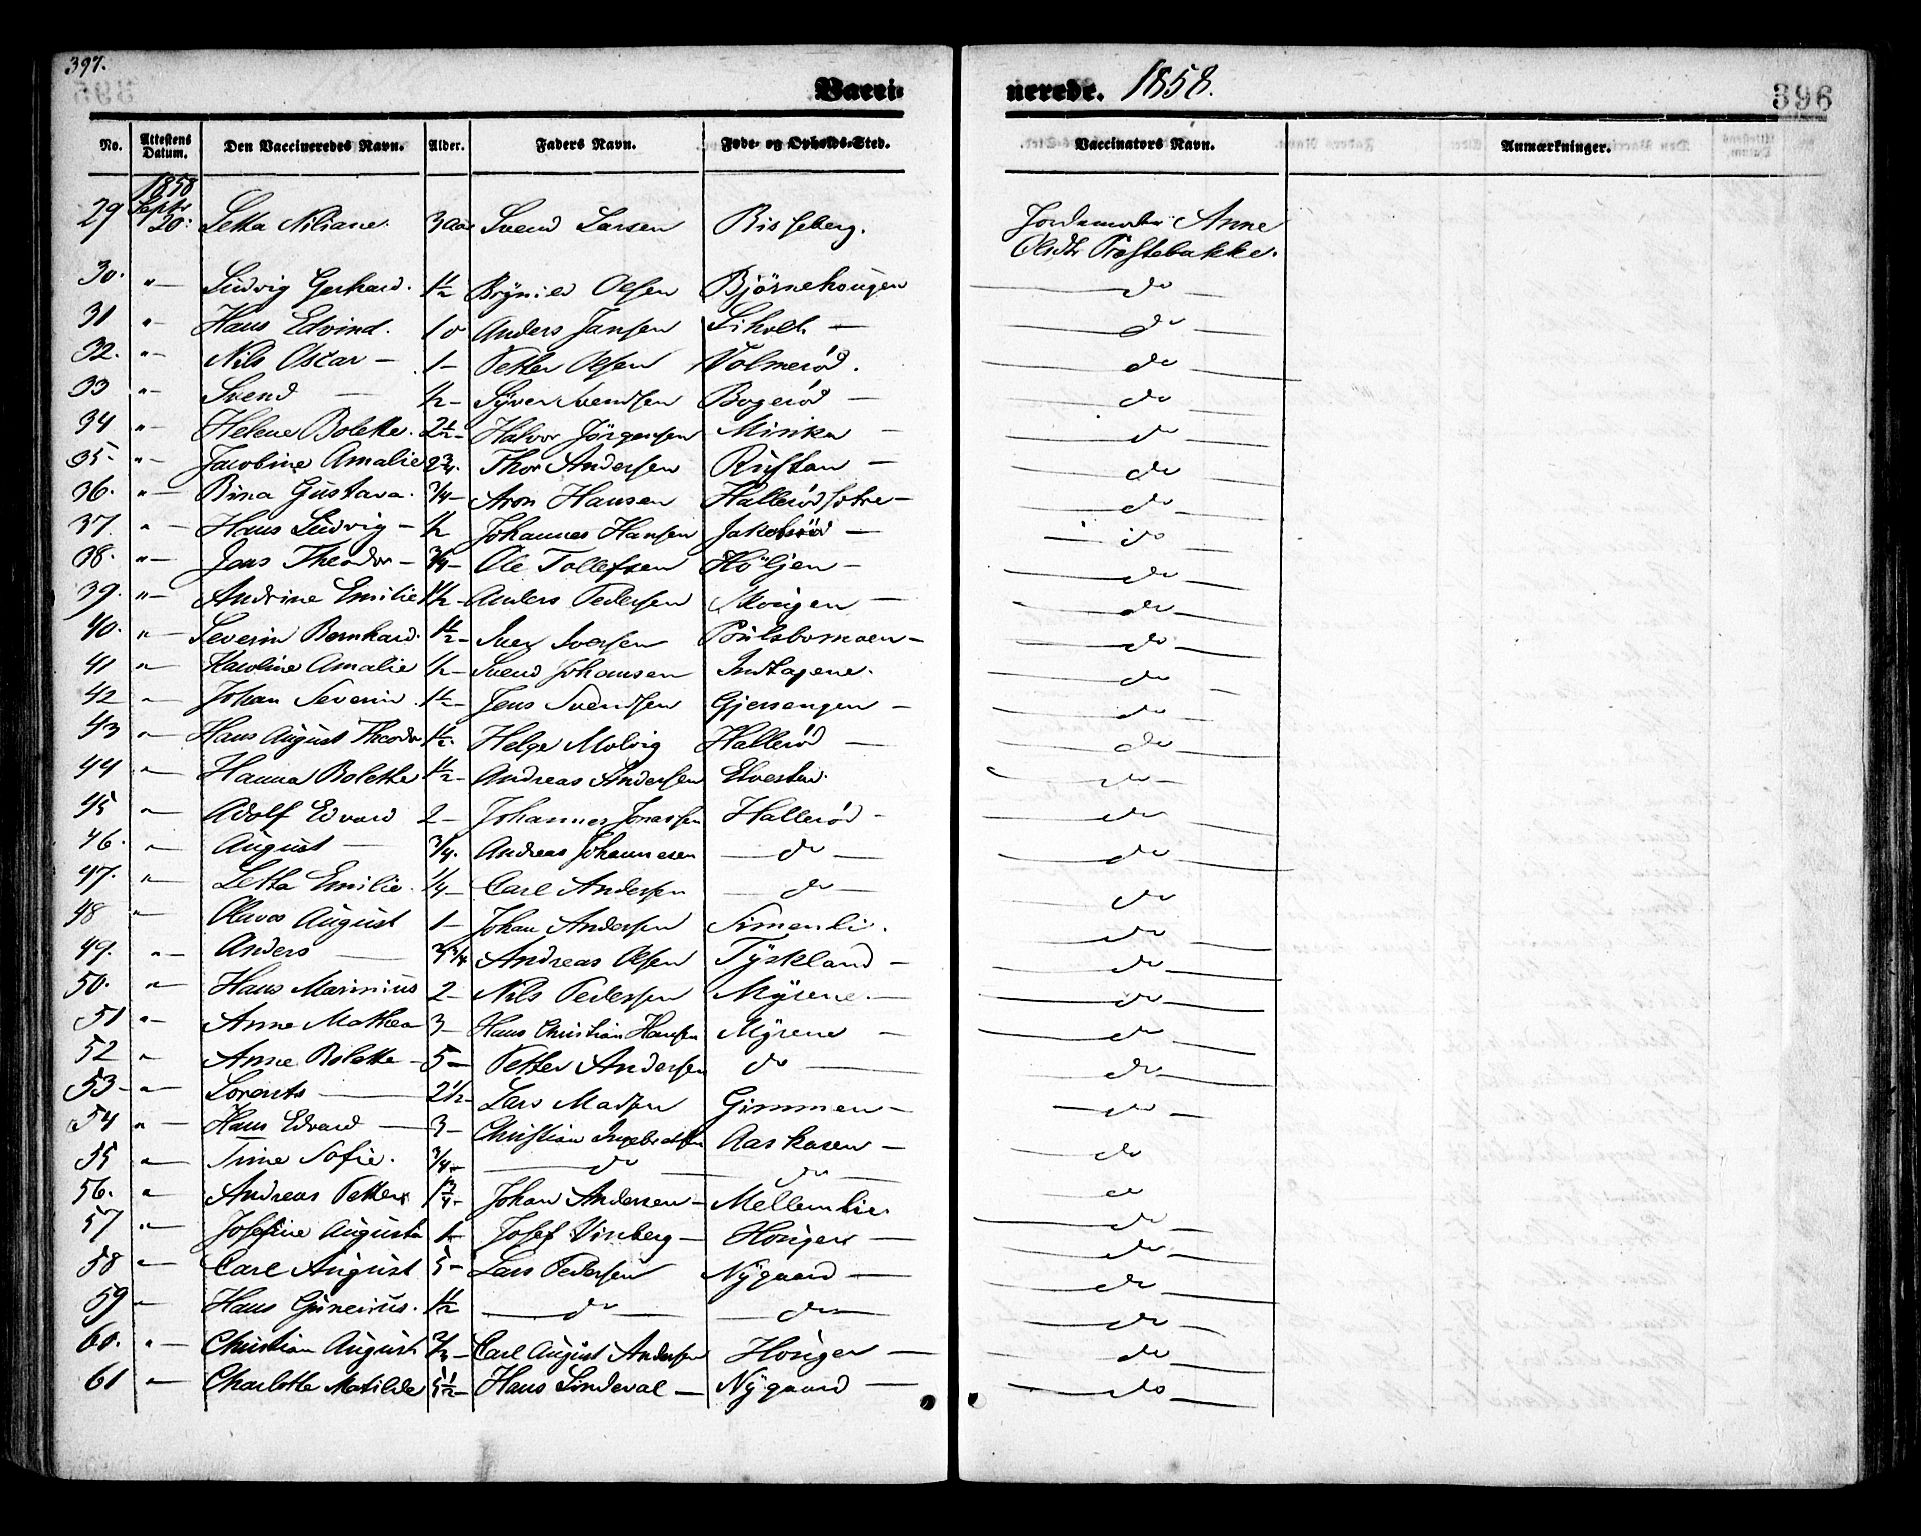 397.
Vacci-
nerede. 1858.
396
No. Attestens Datum. Den Vaccineredes Navn. Alder. Faders Navn. Føde- og Opholds-Sted. Vaccinators Navn. Anmærkninger.
1858
29 Septr 20. Letta Niliane. 3 aar Svend Larsen Bisseberg. Jordemoder Anne
Olsdtr Prestebakke.
30. " — Ludvig Gerhard. 1½ Brynild Olsen Bjørnehougen do
31 " Hans Edvind. 10 Anders Jansen — do
32. " — Nils Oscar — 1 — Petter Olsen Volmerød. do
33 " — Svend — ½ — Syver Svendsen Bogerød — do
34 " — Helene Bolette. 2½ — Halvor Jørgensen — do
35 — " — Jacobine Amalie 2¾. Thor Andersen Rustan — do
36. " — Bina Gustava. ¾ — Aron Hansen do
37. " — Hans Ludvig — ½ Johannes Hansen Jakobsrød — do
38. " — Jens Theodor — ¾ — Ole Tollefsen Höljen — do
39. " — Andrine Emilie 1½ — Anders Pedersen — do
40. " — Severin Bernhard. 1½ — Iver Iversen Poulsbomoen — do
41 " — Karoline Amalie ½ — Svend Johansen Indtagene. do
42 " — Johan Severin. 1½ — Jens Svendsen Gjersengen — do
43 " — Hans August Theodor 1½. Helge Molvig Hallerød — do
44 " — Hanna Bolethe 1½ — Andreas Andersen do
45 " — Adolf Edvard 2 — Johannes Jonassen Hallerød — do
46. " — August — ¾. Andreas Johannesen — do — do
47. " — Letta Emilie. ¼ — Carl Andersen — do — do
48 " — Olavos August 1 — Johan Andersen Simenli. do
49. " — Anders — Andreas Olsen Tyskland — do
50. " — Hans Marinius 2 — Nils Pedersen Myrene. — do
51 " — Anne Mathea 3 — Hans Christian Hansen Myrene — do
52 " Anne Bolette — 5 — Petter Andersen do — do
53 — " — Lorents — 2½ — Lars Madsen Gimmen — do
54 " — Hans Edvard — 3 — Christian Ingebretsen Aaskasen — do
55 " — Trine Sofie. ¾ — do — do do
56. " Andreas Petter 1¾ — Johan Andersen — Mellemlie. do
57 " — Josefine Augusta Josef Vinberg — Hougen — do
58 " — Carl August 5 — Lars Pedersen Nygaard — do
59 " — Hans Gunerius. 1½ — do — — do — do
60. " — Christian August Carl August Andersen Hougen — do
61 " — Charlotte Matilde 5½ — Hans Lindeval — Nygaard — do